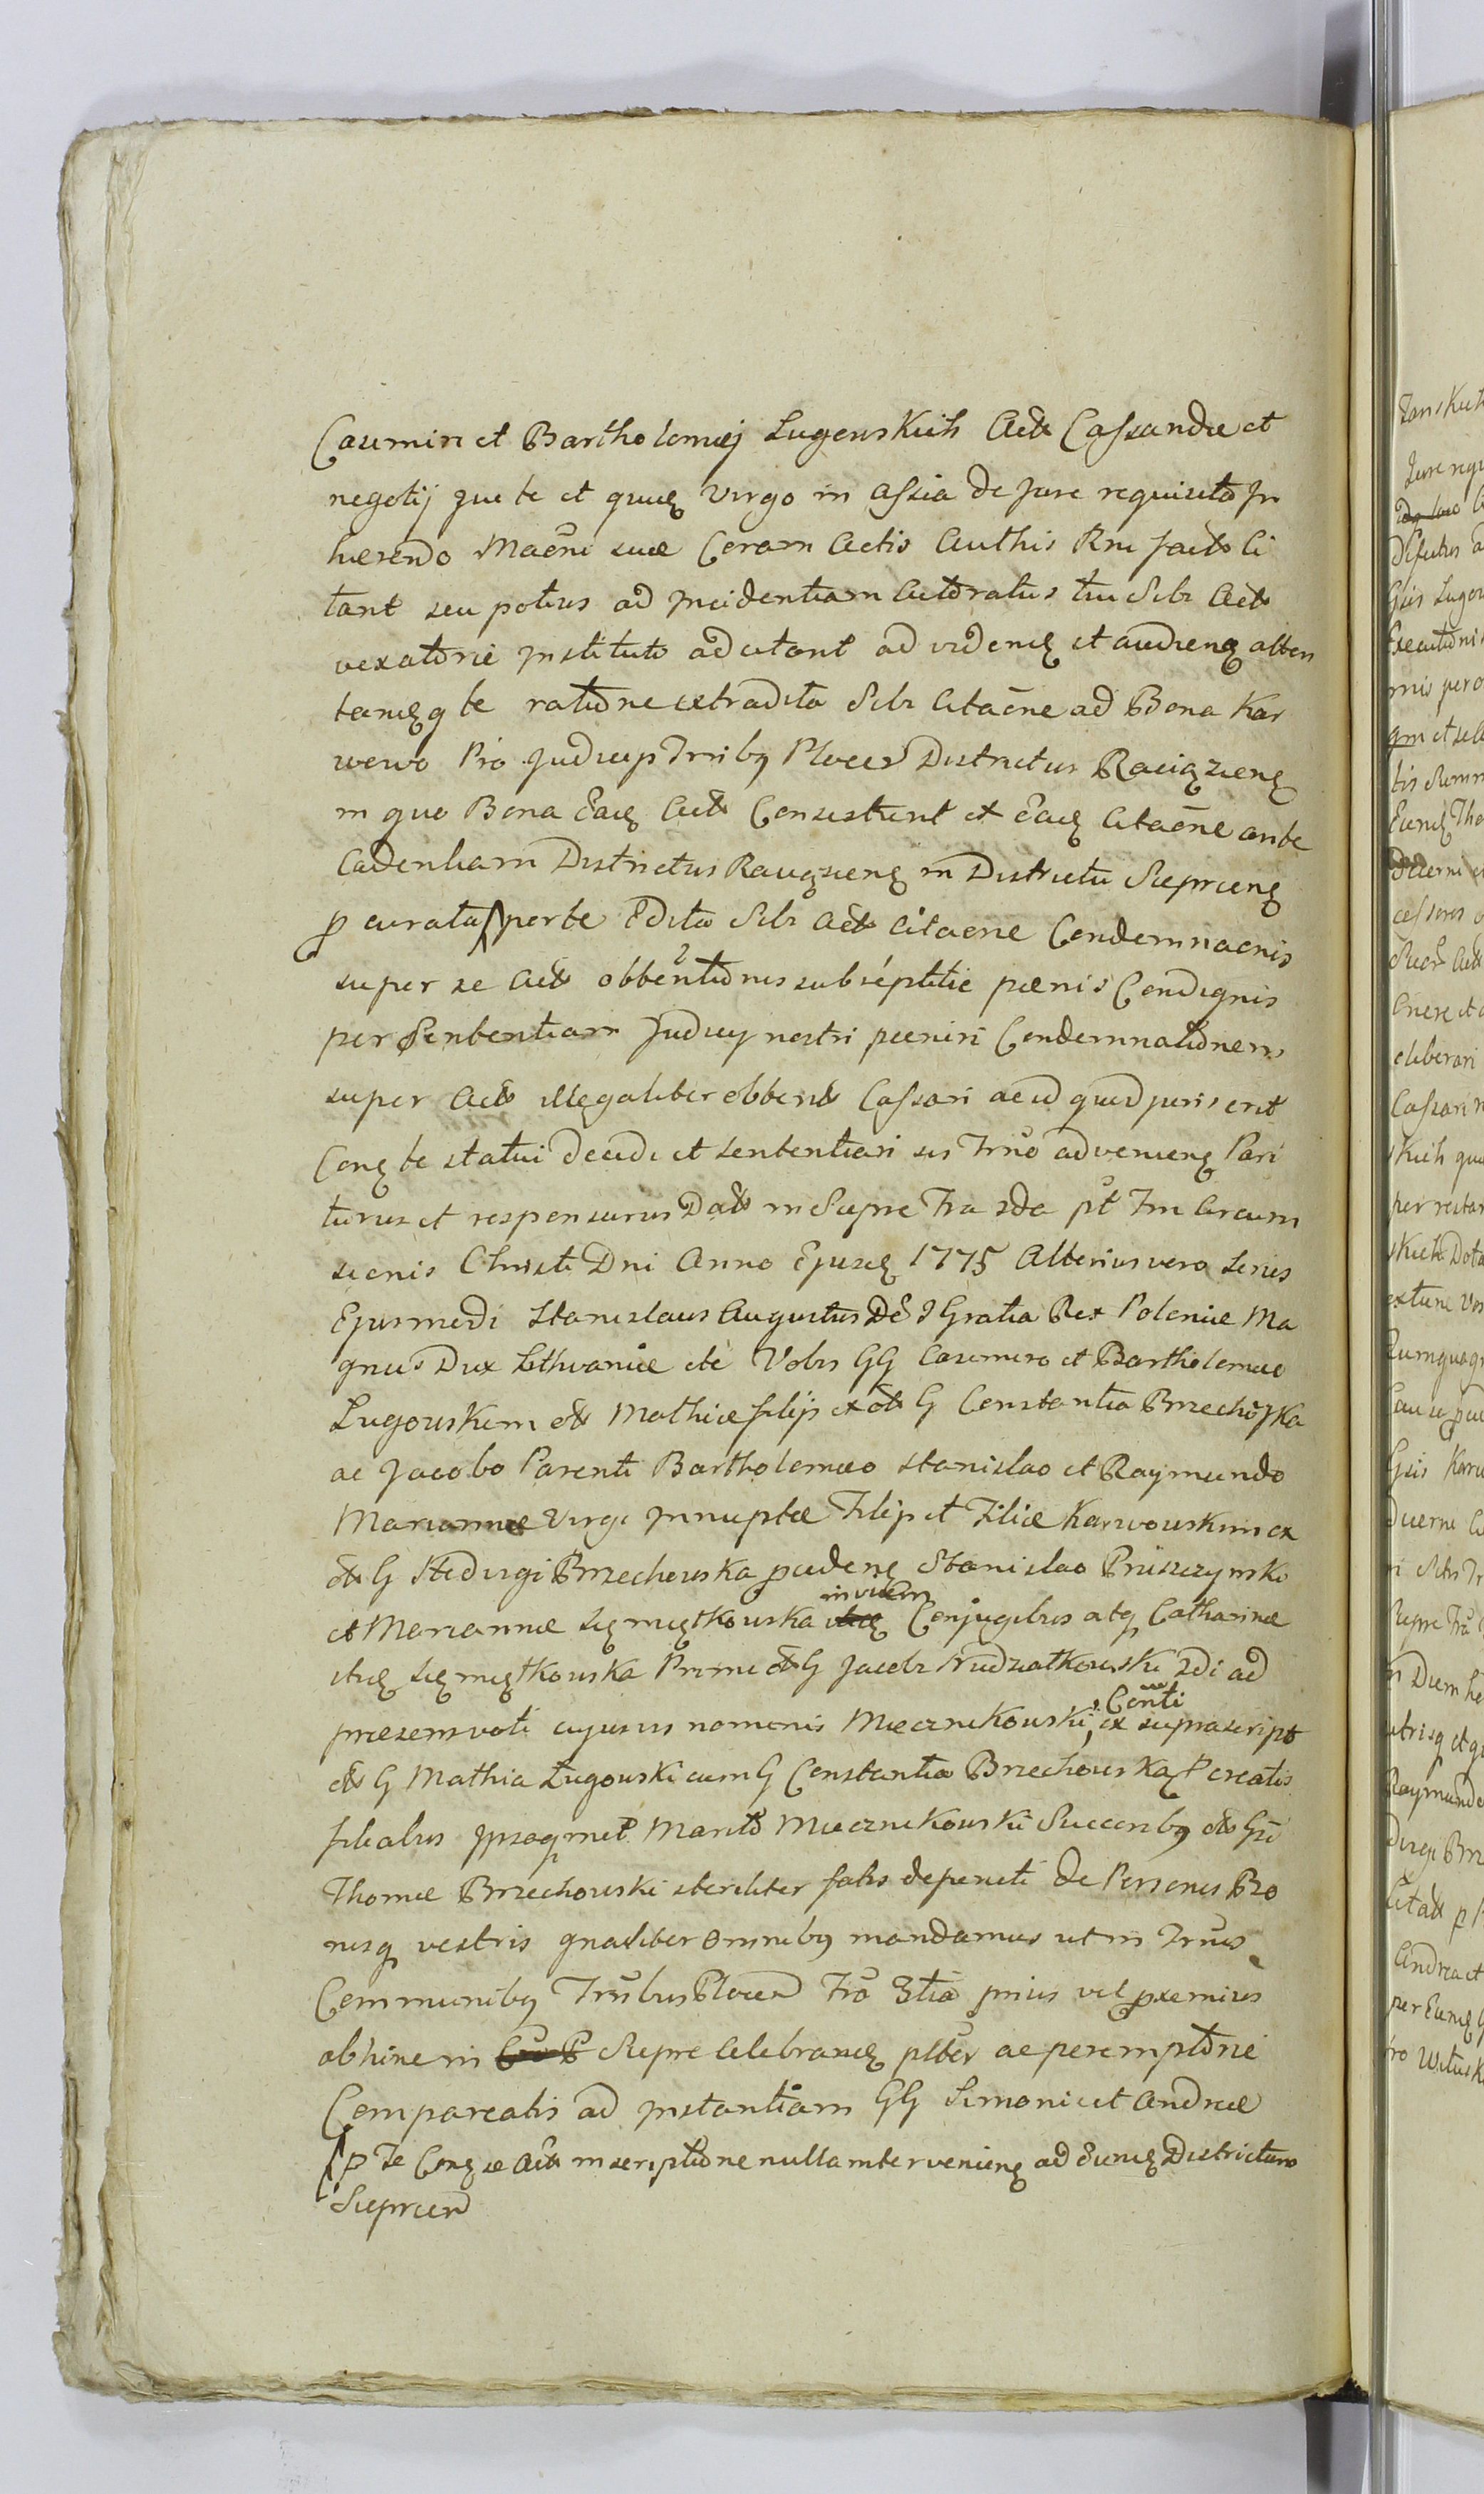 Casimiri et Bartholomej Lugowskich Actt Cassandae et
negotij que te et quug Virgo in assia de Jure requisito In
herendo Maõni suae Coram Actis Authis Rni facto Ci
tant seu potius ad Incidentiam Actoratus tui Sibi Actt
vexatorie Instituto adcitant ad videng et audieng atten
tandg te ratione extradita Sibi Citaõne ad Bona Kar
wowo Pro Judicijs Trribg Plocen Districtus Raciązieng
in quo Bona Eacg Actt Consistunt et Eacg Citaõne ante
Cadentiam Districtus Raciązieng in Districtu Sieprceng
p curata per te Edita Sibi Actt Citaone Condemnaonis
super se Actt obbtentionis subreptitie paenis Condignis
per Sententiam Judicij nostri paeniri Condemnationem
super Actt illegaliter obbent Cassari aeid quid juris erit
Cong te statui decidi et sententiari sis Trnõ advenieng Pari
turus et responsurus Datt in Siepre Fra 2da pt Fm Circum
sicnis Christi Dni Anno Ejusg 1775 Alterius vero Seriei
Ejusmodi Stanislaus Augustus Dei Gratia Rex Poloniae Ma
gnus Dux Lithvaniae etc Vobis GG Casimiro et Bartholomeo
Lugowskim ott Mathiae filijs ex ott G Constantia Brzechoska
ac Jacobo Parenti Bartholomaeo Stanislao et Raymundo
Mariannae Virgi Innuptae Filijs et Filiae Karwowskim ex
ott G Hedvigi Brzechowska pcedeng Stanislao Pruszczynski
et Mariannae Siemiątkowska invicem Conjugibus atq Catharinae
itidg Siemiątkowska Primi ott G Jacobi Niedziatkowski 2di ad
praesens voti cujusvis nomenis Miecznikowski Conti ex suprascript
ott G Mathia Lugowski cum G Constantia Brzechowska Pcreatis
filiabus Ipsoqmet Marito Miecznikowski Succeribg ott Gsi
Thomae Brzechowski steriliter fatis depereti de Personis Bo
nisq vestris gnaliter omnibg mandamus ut in Trnis
Communibg Trnlibus Plocen Fro 3tia prius vel pxemius
abhinc in Siepre Celebrandg plter ac peremptorie
Compareatis ad Instantiam GG Simonis et Andreae
p Te Cong se Actt inscriptione nulla interveniong ad Eundg Districtum
Sieprcen